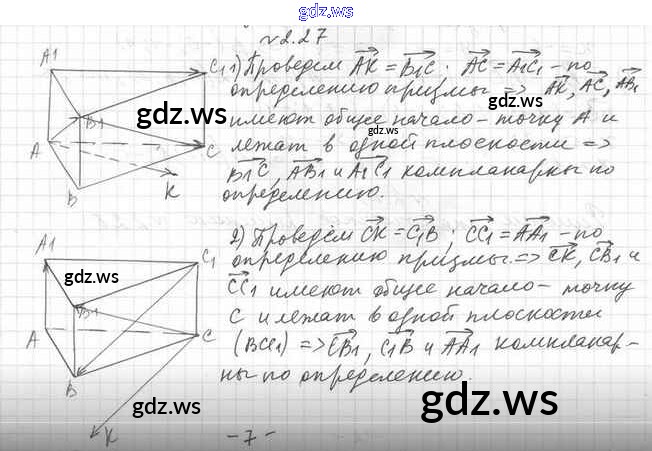 gdz.ws
№2.27
A1 C1 B1 A C B K
1) Проведем AK = B1C. AC = A1C1 - по
определению призмы => AK, AC, AB1
имеют общее начало - точку A и
лежат в одной плоскости =>
B1C, AB1 и A1C1 компланарны по
определению.
gdz.ws
gdz.ws
gdz.ws
A1 C1 B1 A C B K
2) Проведём CK = C1B; CC1 = AA1 - по
определению призмы. => CK, CB1 и
CC1 имеют общее начало - точку
C и лежат в одной плоскости
(BCC1) => CB1, C1B и AA1 компланар-
ны по определению.
gdz.ws
gdz.ws
gdz.ws
gdz.ws
- 7 -